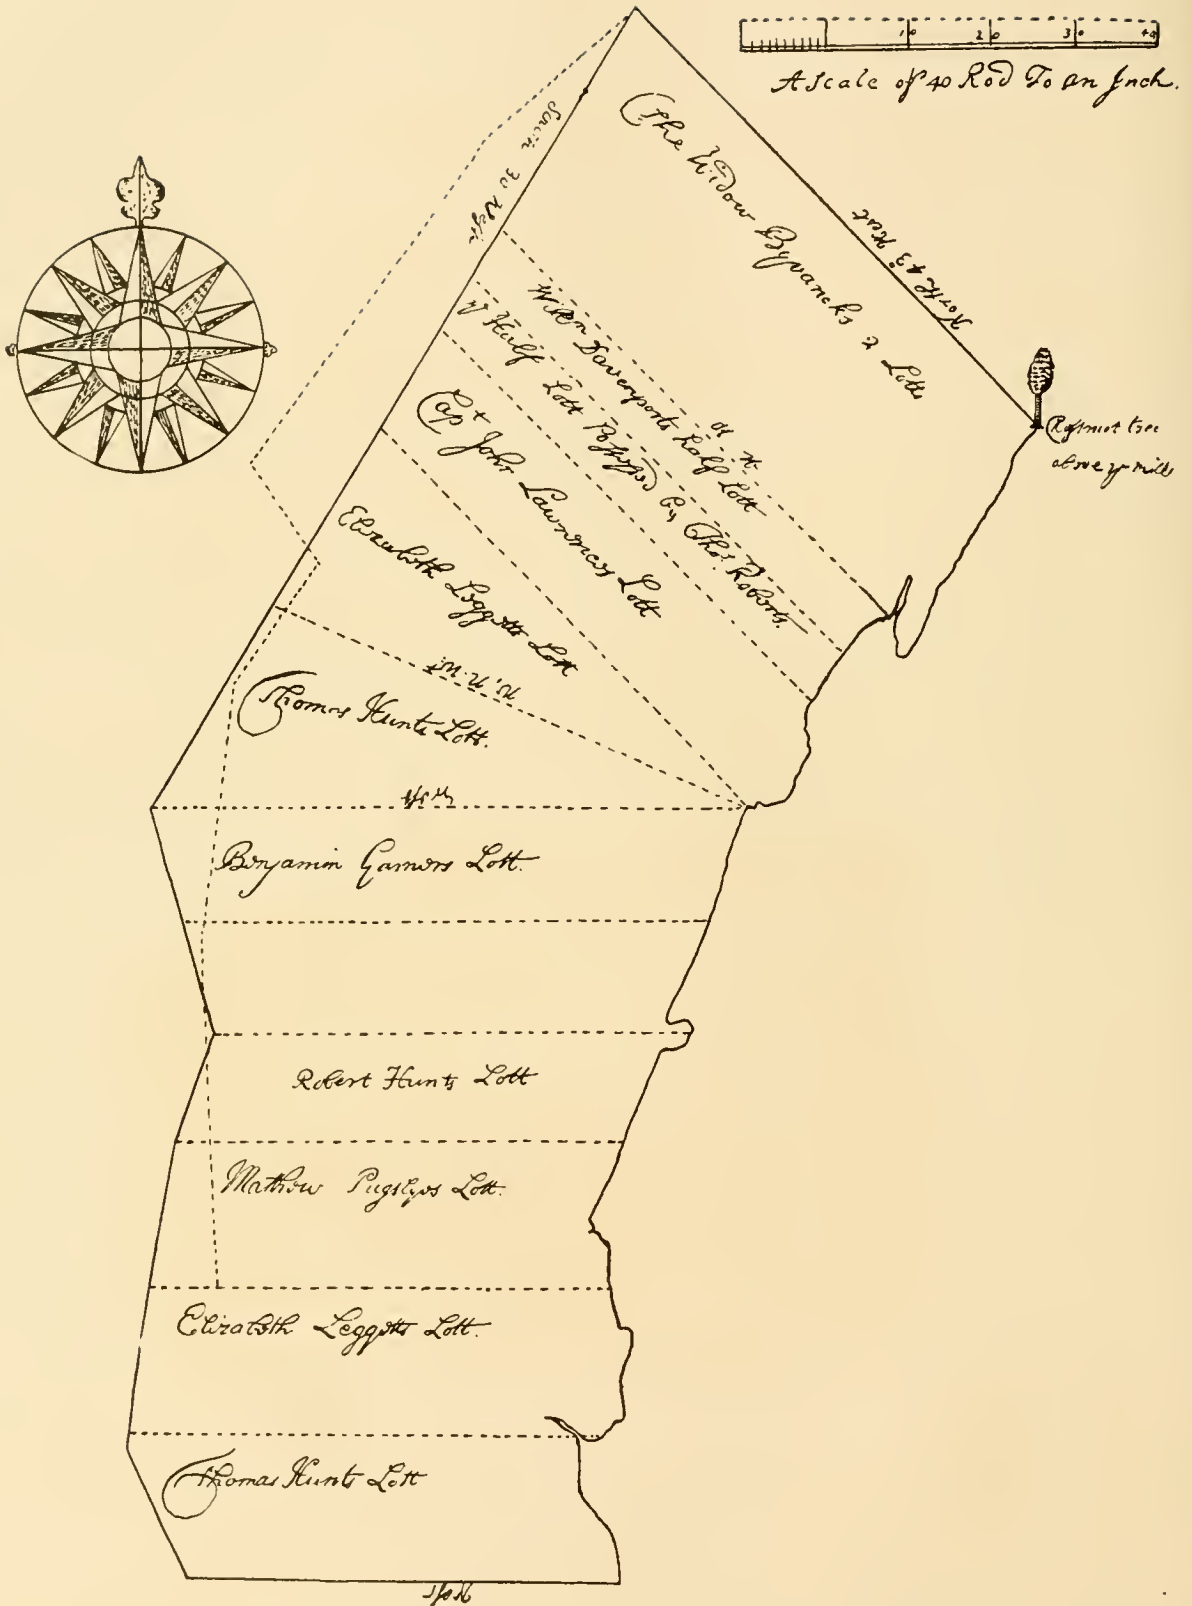 10 20 30 40
A Scale of 40 Rod To an Inch.
The Widow Byvancks 2 Lotts
North 43 West
above ye mills
Davenports half Lott
ye Half Lott Possessed by Thos. Roberts.
Capt John Lawrences Lott
Elizabeth Leggetts Lott
N.N.W.
Thomas Hunts Lott.
Benjamin Lott.
Robert Hunts Lott
Mathew Pugsleys Lott.
Elizabeth Leggetts Lott.
Thomas Hunts Lott
West